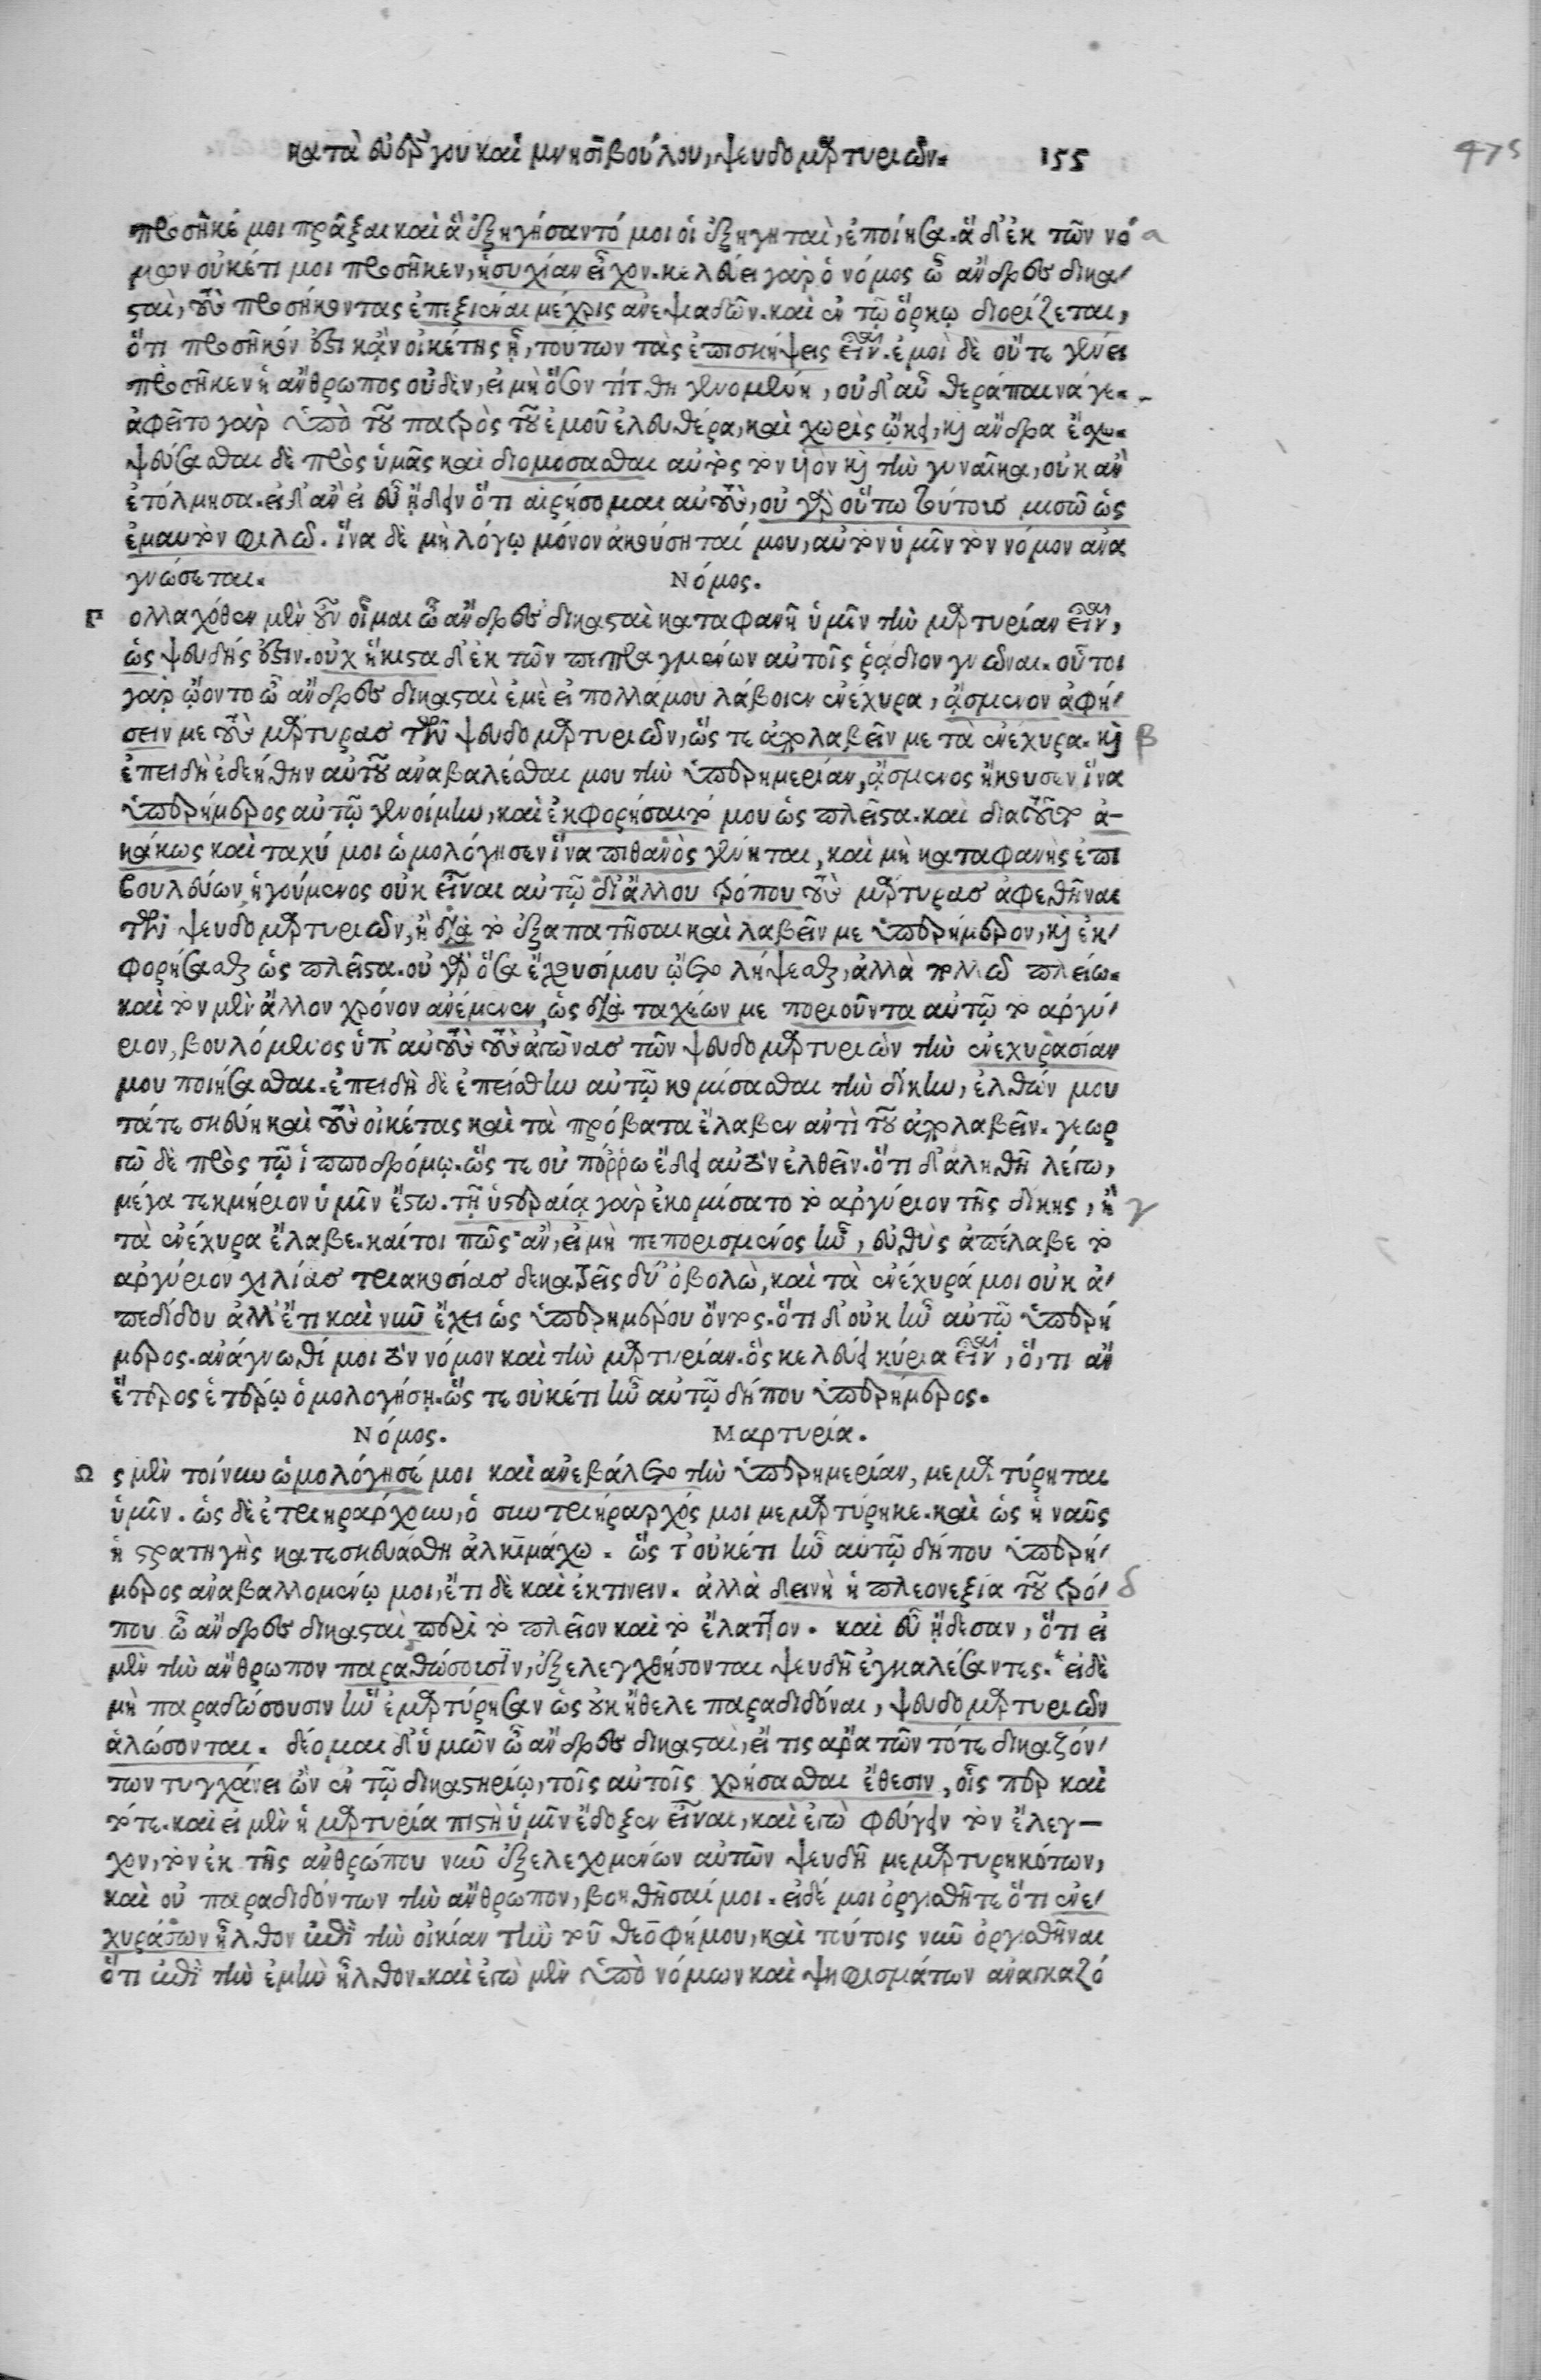 κατὰ εὐέργου καὶ μνησιβούλου, ψευδομαρτυριῶν. 155
475
προσῆκέ μοι πρᾶξαι καὶ ἃ ἐξηγήσαντό μοι οἱ ἐξηγηταὶ, ἐποίησα. ἃ δ' ἐκ τῶν νό α
μων οὐκέτι μοι προσῆκεν, ἡσυχίαν εἶχον. κελεύει γὰρ ὁ νόμος ὦ ἄνδρες δικα
σταὶ, τοὺς προσήκοντας ἐπεξιέναι μέχρις ἀνεψιαδῶν. καὶ ἐν τῷ ὅρκῳ διορίζεται,
ὅτι προσῆκόν ἐστι κἂν οἰκέτης ᾖ, τούτων τὰς ἐπισκήψεις εἶναι. ἐμοὶ δὲ οὔτε γένει
προσῆκεν ἡ ἄνθρωπος οὐδὲν, εἰ μὴ ὅσον τίτθη γενομένη, οὐδ' αὖ θεράπαινά γε.
ἀφεῖτο γὰρ ὑπὸ τοῦ πατρὸς τοῦ ἐμοῦ ἐλευθέρα, καὶ χωρὶς ᾤκει, καὶ ἄνδρα ἔσχε.
ψεύσασθαι δὲ πρὸς ὑμᾶς καὶ διομόσασθαι αὐτὸς τὸν υἱὸν καὶ τὴν γυναῖκα, οὐκ ἂν
ἐτόλμησα. εἰ δ' ἂν εἰ εὖ ᾔδειν ὅτι αἱρήσομαι αὐτοὺς, οὐ γὰρ οὕτω τούτοις μισῶ ὡς
ἐμαυτὸν φιλῶ. ἵνα δὲ μὴ λόγῳ μόνον ἀκούσηταί μου, αὐτὸν ὑμῖν τὸν νόμον ἀνα
γνώσεται. Νόμος.
Πολλαχόθεν μὲν οὖν οἶμαι ὦ ἄνδρες δικασταὶ καταφανῆ ὑμῖν τὴν μαρτυρίαν εἶναι,
ὡς ψευδής ἐστιν. οὐχ ἥκιστα δ' ἐκ τῶν πεπραγμένων αὐτοῖς ῥᾴδιον γνῶναι. οὗτοι
γὰρ ᾤοντο ὦ ἄνδρες δικασταὶ ἐμὲ εἰ πολλά μου λάβοιεν ἐνέχυρα, ἄσμενον ἀφή
σειν με τοὺς μάρτυρας τῶν ψευδομαρτυριῶν, ὥς τε ἀπολαβεῖν με τὰ ἐνέχυρα. καὶ β
ἐπειδὴ ἐδεήθην αὐτοῦ ἀναβαλέσθαι μου τὴν ὑπερημερίαν, ἄσμενος ἤκουσεν ἵνα
ὑπερήμερος αὐτῷ γενοίμην, καὶ ἐκφορήσαιτό μου ὡς πλεῖστα. καὶ διατοῦτο ἀ-
κάκως καὶ ταχύ μοι ὡμολόγησεν ἵνα πιθανὸς γένηται, καὶ μὴ καταφανὴς ἐπι
βουλεύων, ἡγούμενος οὐκ εἶναι αὐτῷ δι' ἄλλου τρόπου τοὺς μάρτυρας ἀφεθῆναι
τῶν ψευδομαρτυριῶν, ἢ διὰ τὸ ἐξαπατῆσαι καὶ λαβεῖν με ὑπερήμερον, καὶ ἐκ
φορήσασθαι ὡς πλεῖστα. οὐ γὰρ ὅσα ἔχουσί μου ᾤετο λήψεσθαι, ἀλλὰ πολλῶ πλείω.
καὶ τὸν μὲν ἄλλον χρόνον ἀνέμενεν, ὡς διὰ ταχέων με ποριοῦντα αὐτῷ τὸ ἀργύ
ριον, βουλόμενος ὑπ' αὐτοὺς τοὺς ἀγῶνας τῶν ψευδομαρτυριῶν τὴν ἐνεχυρασίαν
μου ποιήσασθαι. ἐπειδὴ δὲ ἐπείσθην αὐτῷ κομίσασθαι τὴν δίκην, ἐλθών μου
τάτε σκεύη καὶ τοὺς οἰκέτας καὶ τὰ πρόβατα ἔλαβεν ἀντὶ τοῦ ἀπολαβεῖν. γεωρ
γῶ δὲ πρὸς τῷ ἱπποδρόμῳ. ὥς τε οὐ πόῤῥω ἔδει αὐτὸν ἐλθεῖν. ὅτι δ' ἀληθῆ λέγω,
μέγα τεκμήριον ὑμῖν ἔστω. τῇ ὑστεραίᾳ γὰρ ἐκομίσατο τὸ ἀργύριον τῆς δίκης, ἢ γ
τὰ ἐνέχυρα ἔλαβε. καίτοι πῶς ἂν, εἰ μὴ πεπορισμένος ἦν, εὐθὺς ἀπέλαβε τὸ
ἀργύριον χιλίας τριακοσίας δεκατρεῖς δύ' ὀβολὼ, καὶ τὰ ἐνέχυρά μοι οὐκ ἀ
πεδίδου ἀλλ' ἔτι καὶ νῦν ἔχει ὡς ὑπερημέρου ὄντος. ὅτι δ' οὐκ ἦν αὐτῷ ὑπερή
μερος. ἀνάγνωθί μοι τὸν νόμον καὶ τὴν μαρτυρίαν. ὃς κελεύει κύρια εἶναι, ὅ, τι ἂν
ἕτερος ἑτέρῳ ὁμολογήσῃ. ὥς τε οὐκέτι ἦν αὐτῷ δήπου ὑπερήμερος.
Νόμος. Μαρτυρία.
Ως μὲν τοίνυν ὡμολόγησέ μοι καὶ ἀνεβάλετο τὴν ὑπερημερίαν, μεμαρτύρηται
ὑμῖν. ὡς δὲ ἐτριηράρχουν, ὁ συντριήραρχός μοι μεμαρτύρηκε. καὶ ὡς ἡ ναῦς
ἡ στρατηγὴς κατεσκευάσθη ἀλκιμάχω. ὥς τ' οὐκέτι ἦν αὐτῷ δήπου ὑπερή
μερος ἀναβαλλομένῳ μοι, ἔτι δὲ καὶ ἐκτίνειν. ἀλλὰ δεινὴ ἡ πλεονεξία τοῦ τρό δ
που ὦ ἄνδρες δικασταὶ περὶ τὸ πλεῖον καὶ τὸ ἔλαττον. καὶ εὖ ᾔδεσαν, ὅτι εἰ
μὲν τὴν ἄνθρωπον παραδώσουσιν, ἐξελεγχθήσονται ψευδῆ ἐγκαλέσαντες. * εἰ δὲ
μὴ παραδώσουσιν ἣν ἐμαρτύρησαν ὡς οὐκ ἤθελε παραδιδόναι, ψευδομαρτυριῶν
ἁλώσονται. δέομαι δ' ὑμῶν ὦ ἄνδρες δικασταὶ, εἴ τις ἄρα τῶν τότε δικαζόν
των τυγχάνει ὢν ἐν τῷ δικαστηρίῳ, τοῖς αὐτοῖς χρήσασθαι ἔθεσιν, οἷς περ καὶ
τότε. καὶ εἰ μὲν ἡ μαρτυρία πιστὴ ὑμῖν ἔδοξεν εἶναι, καὶ ἐγὼ φεύγειν τὸν ἔλεγ-
χον, τὸν ἐκ τῆς ἀνθρώπου νῦν ἐξελεχομένων αὐτῶν ψευδῆ μεμαρτυρηκότων,
καὶ οὐ παραδιδόντων τὴν ἄνθρωπον, βοηθῆσαί μοι. εἰ δέ μοι ὀργισθῆτε ὅτι ἐνε
χυράσων ἦλθον ἐπὶ τὴν οἰκίαν τὴν τοῦ θεοφήμου, καὶ τούτοις νῦν ὀργισθῆναι
ὅτι ἐπὶ τὴν ἐμὴν ἦλθον. καὶ ἐγὼ μὲν ὑπὸ νόμων καὶ ψηφισμάτων ἀναγκαζό